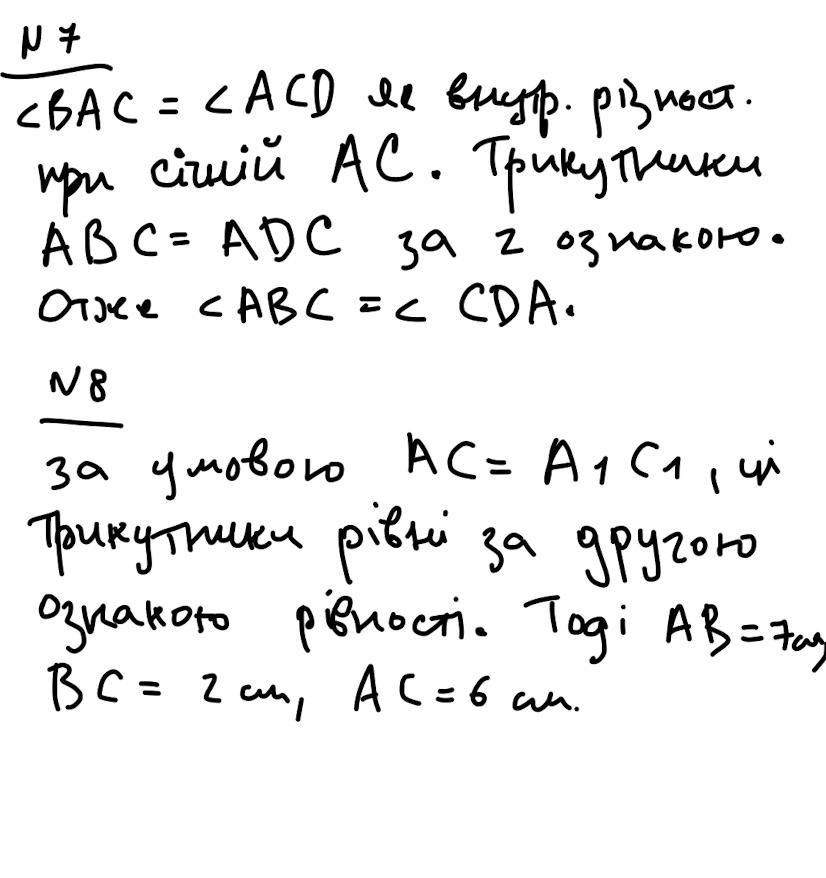 N 7
<BAC = <ACD як внутр. різност.
при січній AC. Трикутники
ABC = ADC за 2 ознакою.
Отже <ABC = < CDA.
N 8
за умовою AC = A1C1, ці
трикутники рівні за другою
ознакою рівності. Тоді AB = 7см,
BC = 2 см, AC = 6 см.